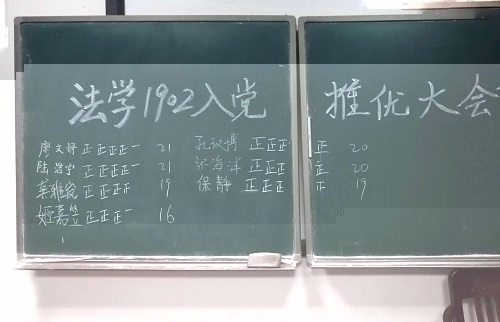 法学1902入党 推优大会
廖文婷 正正正正一 21
陆浩宇 正正正正一 21
莫雅 正正正正 19
姬嘉笠 正正正一 16
孔政博 正正正正 20
祁海洋 正正正正 20
保静 正正正正 19